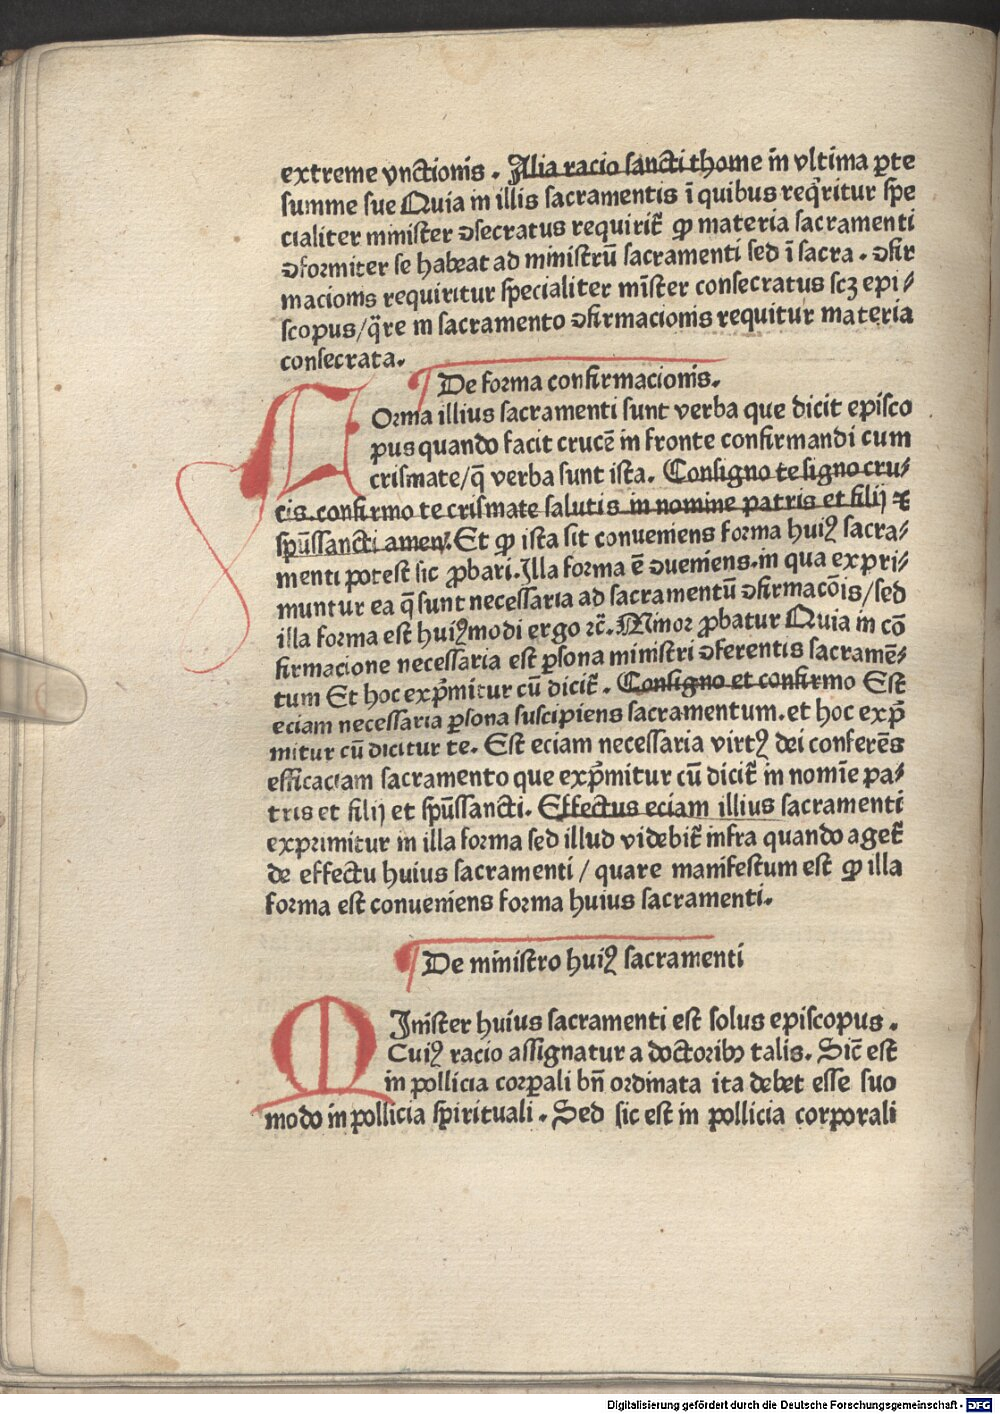 extreme vnctionis . Alia racio sancti thome in vltima ꝑte
summe sue Quia in illis sacramentis ī quibus reqͥritur spe
cialiter minister ↄsecratus requirit᷑ ꝙ materia sacramenti
ↄformiter se habeat ad ministrū sacramenti sed ī sacra . ↄfir
macionis requiritur specialiter mīster consecratus scꝫ epi⸗
scopus/q̄re in sacramento ↄfirmacionis requitur materia
consecrata.
De forma confirmacionis.
Orma illius sacramenti sunt verba que dicit episco
pus quando facit crucē in fronte confirmandi cum
crismate/q̄ verba sunt ista. Consigno te signo cru⸗
cis confirmo te crismate salutis in nomine patris et filij ⁊
spūssancti amen. Et ꝙ ista sit conueniens forma huiꝰ sacra⸗
menti potest sic ꝓbari. Illa forma ē ↄueniens. in qua expri⸗
muntur ea q̄ sunt necessaria ad sacramentū ↄfirmacōis/sed
illa forma est huiꝰmodi ergo ⁊c̄. Minor ꝓbatur Quia in cō
firmacione necessaria est ꝑsona ministri ↄferentis sacramē⸗
tum Et hoc exp̄mitur cū dicit᷑ . Consigno et confirmo Est
eciam necessaria ꝑsona suscipiens sacramentum. et hoc exp̄
mitur cū dicitur te. Est eciam necessaria virtꝰ dei conferēs
efficaciam sacramento que exp̄mitur cū dicit᷑ in nomīe pa⸗
tris et filij et spūssancti. Effectus eciam illius sacramenti
exprimitur in illa forma sed illud videbit᷑ infra quando aget᷑
de effectu huius sacramenti / quare manifestum est ꝙ illa
forma est conueniens forma huius sacramenti.
De ministro huiꝰ sacramenti
MInister huius sacramenti est solus episcopus .
Cuiꝰ racio assignatur a doctoribꝫ talis. Sic̄ est
in pollicia corꝑali bn̄ ordinata ita debet esse suo
modo in pollicia spirituali . Sed sic est in pollicia corporali
Digitalisierung gefördert durch die Deutsche Forschungsgemeinschaft - DFG